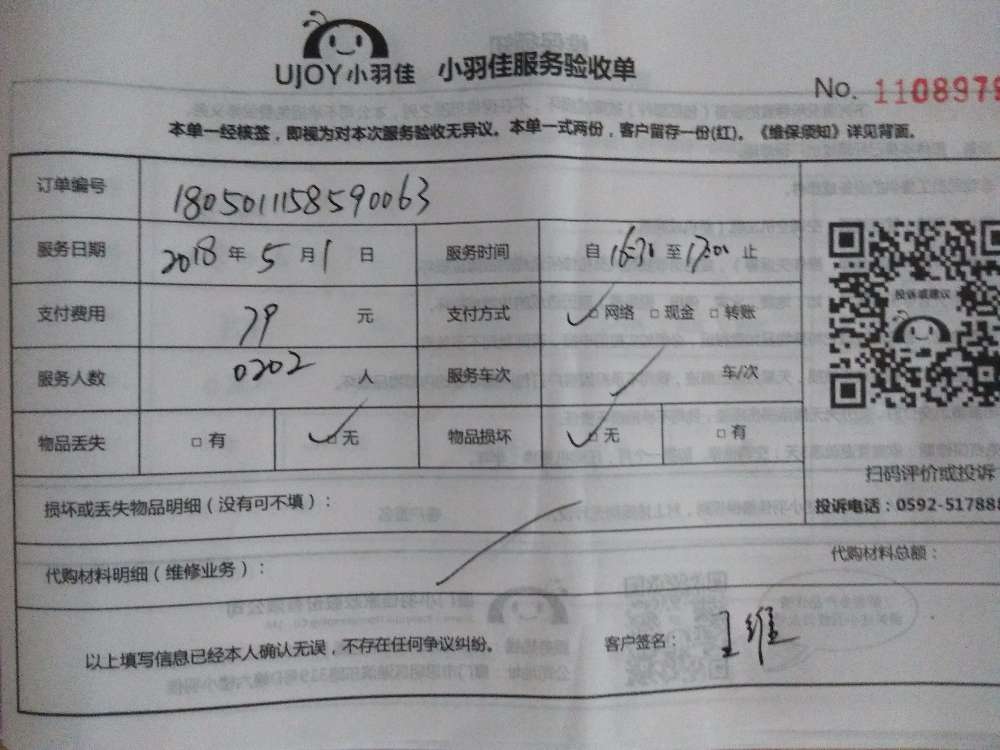 UJOY小羽佳 小羽佳服务验收单
No. 1108979
本单一经核签，即视为对本次服务验收无异议。本单一式两份，客户留存一份(红)。《维保须知》详见背面。
订单编号 1805011158590063
服务日期 2018 年 5 月 1 日 服务时间 自 16:30 至 17:00 止
支付费用 79 元 支付方式 ✓□ 网络 □ 现金 □ 转账
投诉或建议
服务人数 0202 人 服务车次 车/次
物品丢失 □ 有 ✓□ 无 物品损坏 ✓□ 无 □ 有
扫码评价或投诉
损坏或丢失物品明细（没有可不填）：
投诉电话：0592-517888
代购材料明细（维修业务）：
代购材料总额：
以上填写信息已经本人确认无误，不存在任何争议纠纷。 客户签名： 王维